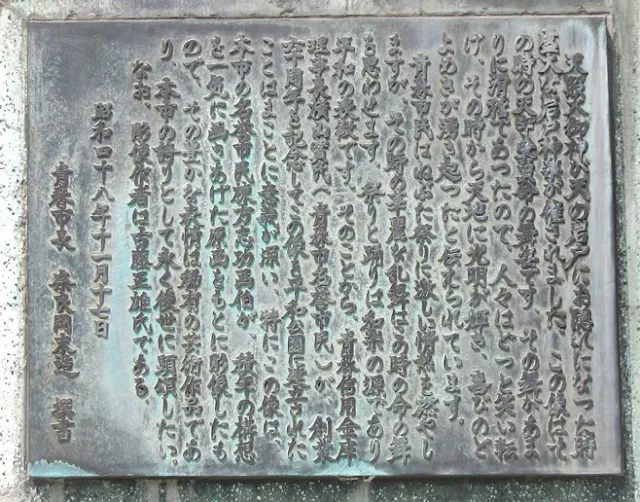 天照大御神が天の岩戸にお隠れになった時
盛大な岩戸神楽が催されました この像はそ
の時の天宇受賣命の舞姿です、その舞があま
りに滑稽であつたので、人々はどっと笑い転
け、その時から天地に光明が輝き、喜びのど
よめきが湧き起つたと伝えられています。
青森市民はねぶた祭りに激しい情熱を燃やし
ますが、その時の華麗な乱舞はこの時の命の舞
を思わせます 祭りと踊りは和楽の源であり
平和の象徴です、そのことから、青森信用金庫
理事長横山實氏へ青森市名誉市民しが 創業
五十周年を記念してこの像を平和公園に建立された
ことはまことに意義が深い、特にこの像は、
本市の名誉市民棟方志功画伯が 積年の構想
を一気に画きあげた原画をもとに彫像したも
ので、その豊かな表情は稀有の芸術作品であ
り、本市の誇りとして永く後世に顕伝したい。
なお、彫像作者は古藤正雄氏である
昭和四十八年十一月十七日
青森市長 奈良岡末造 撰書